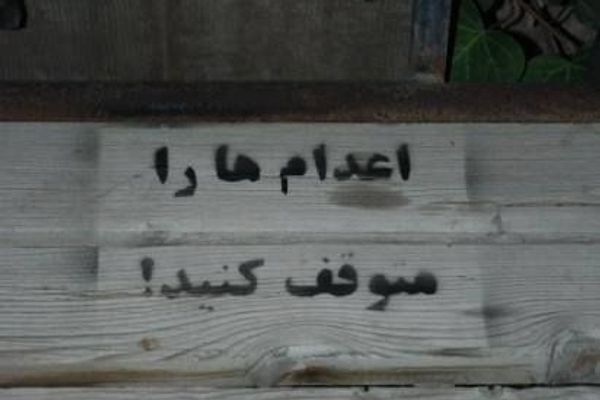 اعدام ها را
متوقف کنید!